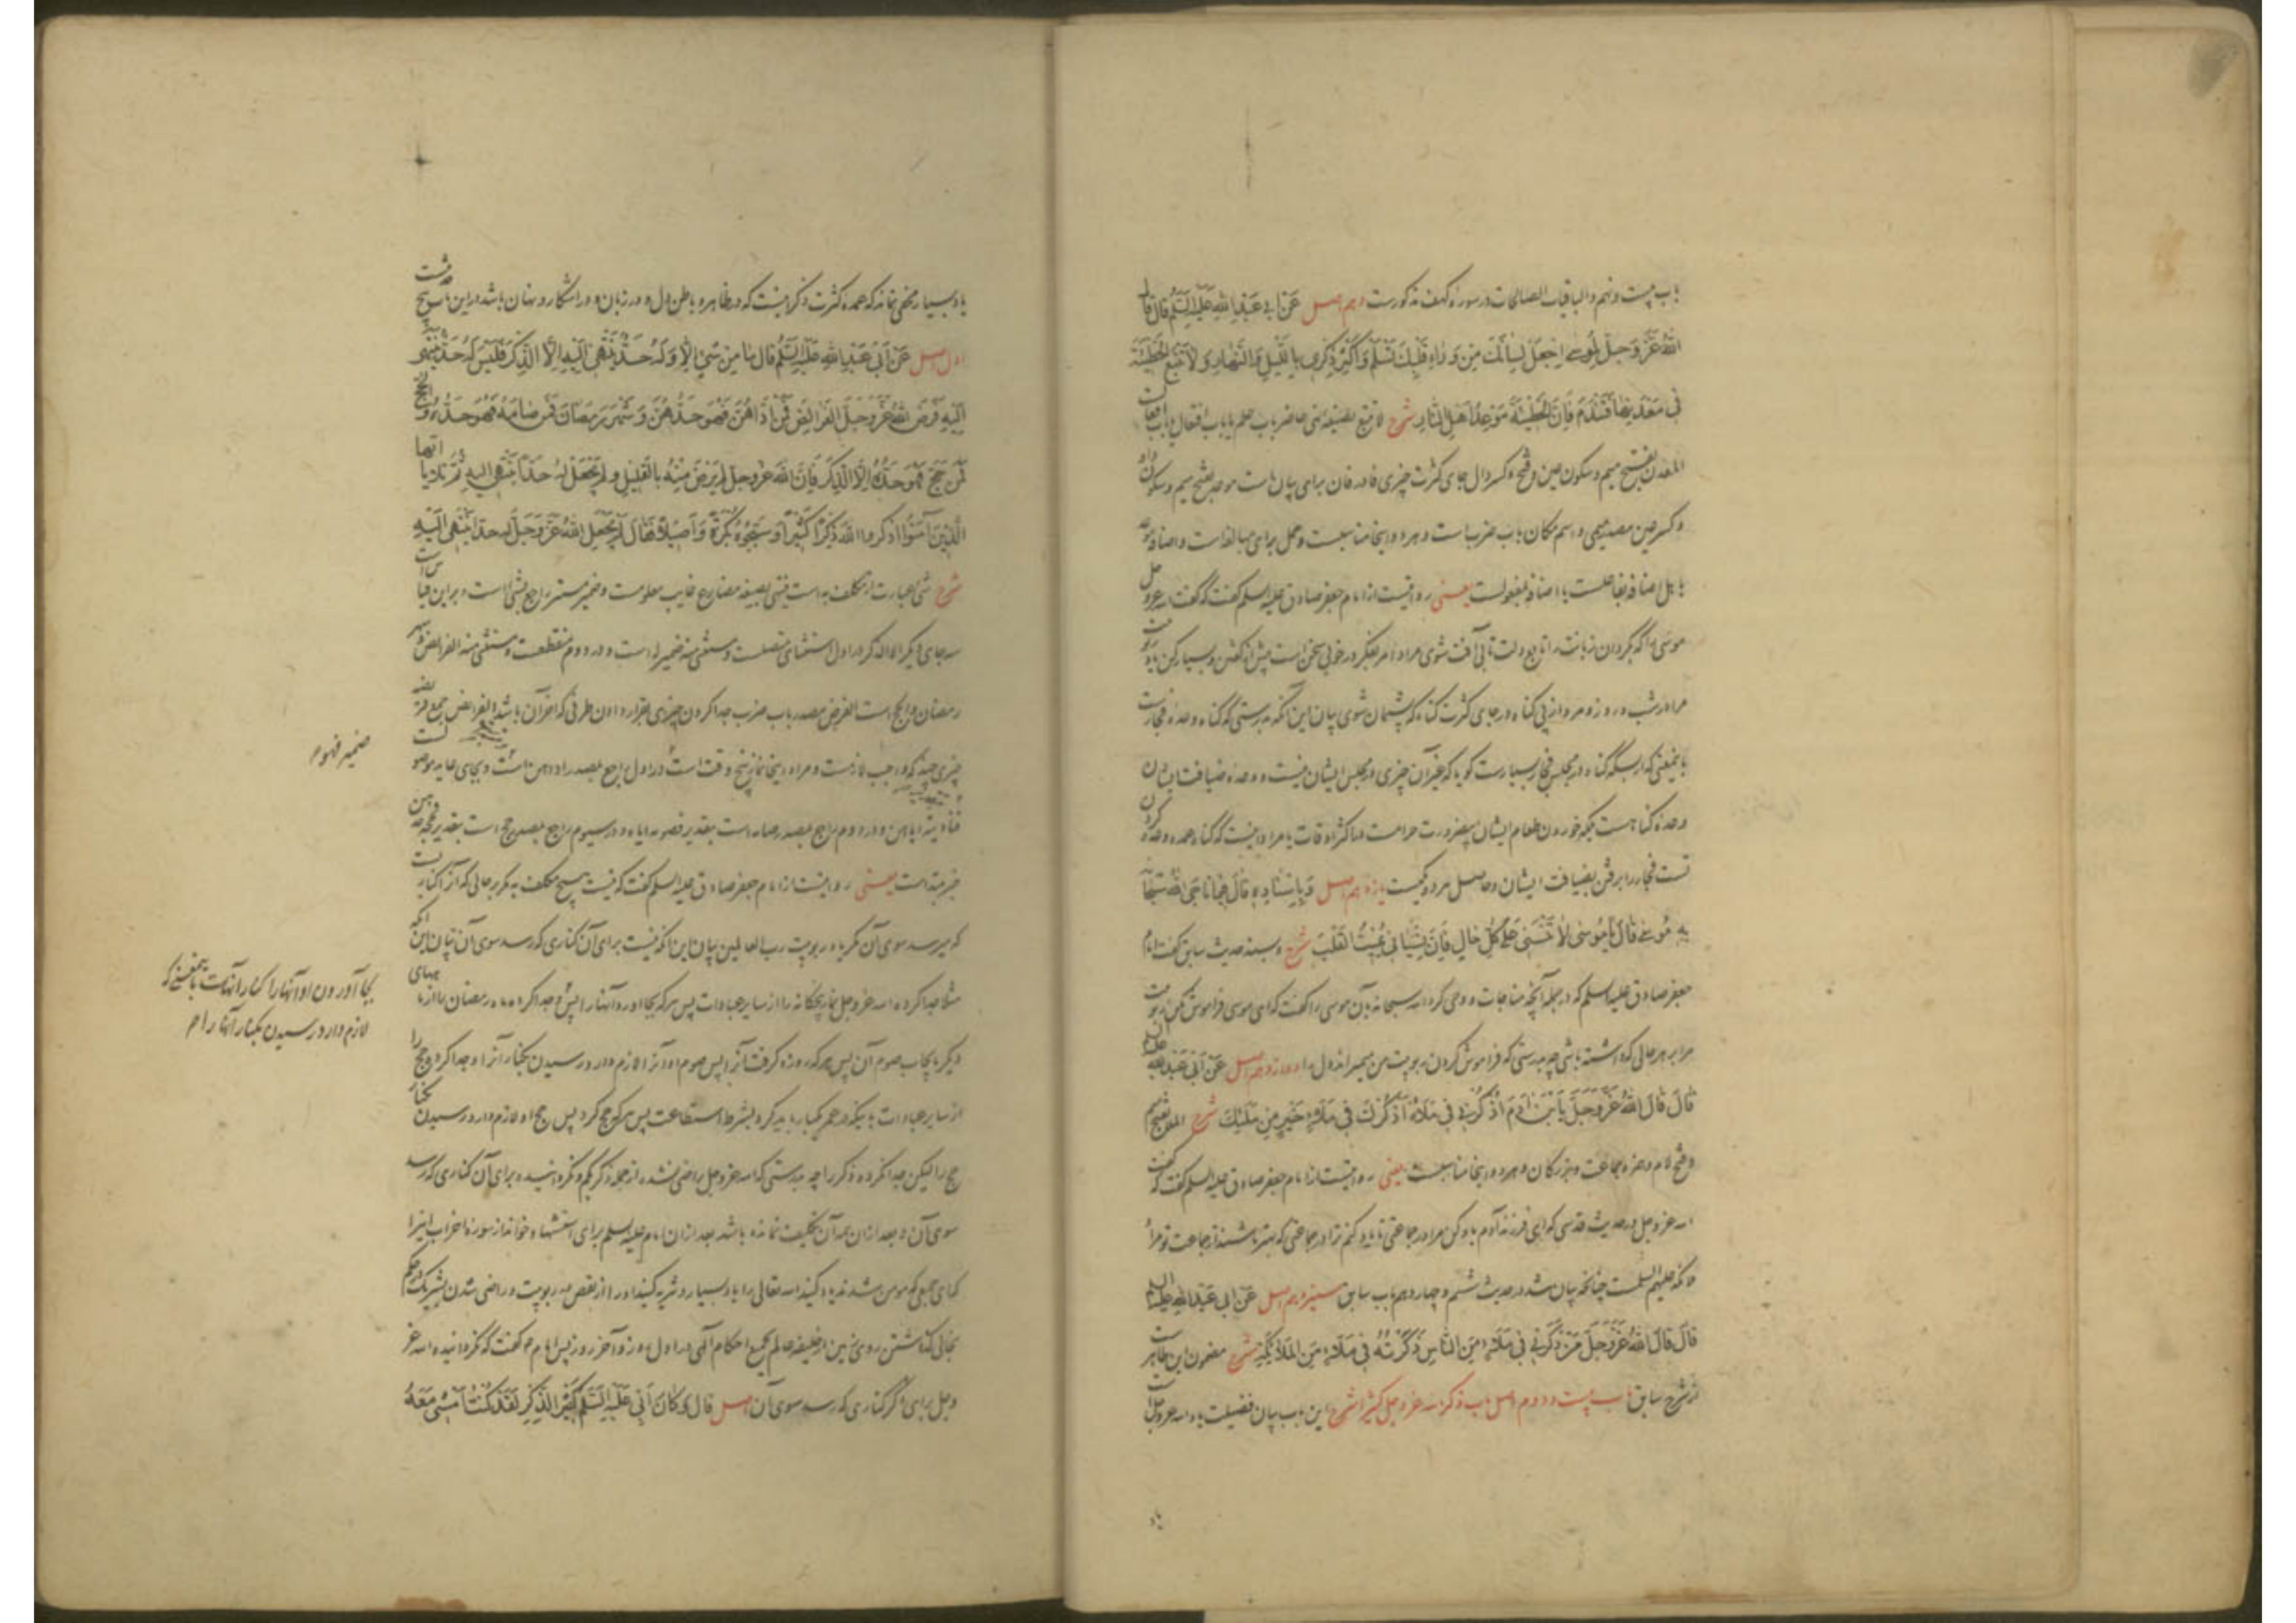 باب بیست و نهم و الباقیات الصالحات در سوره کهف مذکورست دهم اصل عَنْ أَبِي عَبْدِ اللهِ عَلَيْهِ السَّلَمُ قَالَ قَالَ
اللهُ عَزَّ وَجَلَّ لِمُوسَى اجْعَلْ لِسَانَكَ مِنْ وَرَاءِ قَلْبِكَ تَسْلَمْ وَأَكْثِرْ ذِكْرِي بِاللَّيْلِ وَالنَّهَارِ وَلَا تَتَّبِعِ الْخَطِيئَةَ
فِي مَعْدِنِهَا فَتَنْدَمَ فَإِنَّ الْخَطِيئَةَ مَوْعِدُ أَهْلِ النَّارِ شرح لا تتبع بصیغه نهی حاضر باب علم یا باب افتعال است
المعدن بفتح میم و سکون عین و فتح و کسر دال جای کثرت چیزی فا در فان برای بیان است موعد بفتح میم و سکون واو
و کسر عین مصدر میمی و اسم مکان باب ضرب است و هر دو اینجا مناسبست و حمل برای مبالغه است و اضافه موعد
باهل اضافه بفاعلست یا اضافه بمفعولست یعنی روایتست از امام جعفر صادق علیه السلم گفت که گفت الله عز وجل
موسی را که بگردان زبانت را تابع دلت تا بی آفت شوی مراد امر بتفکر در خوبی سخن است پیش از گفتن و بسیار کن یاد
مرا در شب و روز و مرو از پی گناه در جای کثرت گناه که پشیمان شوی بیان این آنکه بدرستی که گناه وعده فجارست
باینمعنی که از بسکه گناه در مجلس فجار بسیارست گویا که غیر آن چیزی در مجلس ایشان نیست و وعده ضیافت ایشان
وعده گناهست بلکه خوردن طعام ایشان بیضرورت حرامست در اکثر اوقات یا مراد اینست که گناه عمده وعده کردن
تست فجار را برفتن بضیافت ایشان و حاصل هر دو یکیست یازدهم اصل وَبِإِسْنَادِهِ قَالَ فِيمَا نَاجَى اللهُ سُبْحَانَهُ
بِهِ مُوسَى قَالَ يَا مُوسَى لَا تَنْسَنِي عَلَى كُلِّ حَالٍ فَإِنَّ نِسْيَانِي يُمِيتُ الْقَلْبَ شرح و بسند حدیث سابق گفت امام
جعفر صادق علیه السلم که در جمله آنچه مناجات و وحی کرد الله سبحانه بآن موسی را گفت که ای موسی فراموش مکن ربوبیت
مرا بر هر حالی که داشته باشی چه بدرستی که فراموش کردن ربوبیت من میمیراند دل را دوازدهم اصل عَنْ أَبِي عَبْدِ اللهِ عَلَيْهِ السلم
قَالَ قَالَ اللهُ عَزَّ وَجَلَّ يَا بْنَ آدَمَ اذْكُرْنِي فِي مَلَاءٍ أَذْكُرْكَ فِي مَلَاءٍ خَيْرٍ مِنْ مَلَئِكَ شرح الملا بفتح میم
و فتح لام و همزه جماعت و بزرگان و هر دو اینجا مناسبست یعنی روایتست از امام جعفر صادق علیه السلم گفت که گفت
الله عز وجل در حدیث قدسی که ای فرزند آدم یاد کن مرا در جماعتی تا یاد کنم ترا در جماعتی که بهتر باشند از جماعت تو مراد
ملائکه علیهم السلمست چنانچه بیان شد در حدیث ششم و چهاردهم باب سابق سیزدهم اصل عَنْ أَبِي عَبْدِ اللهِ عَلَيْهِ السلم
قَالَ قَالَ اللهُ عَزَّ وَجَلَّ مَنْ ذَكَرَنِي فِي مَلَاءٍ مِنَ النَّاسِ ذَكَرْتُهُ فِي مَلَاءٍ مِنَ الْمَلَائِكَةِ شرح مضمون این ظاهرست
از شرح سابق باب بیست و دوم اصل باب ذکر الله عز وجل کثیرا شرح این باب بیان فضیلت یاد الله عز وجل است
یاد
یاد بسیار مخفی نماند که عمده کثرت ذکر اینست که در ظاهر و باطن دل و در زبان و در آشکار و نهان باشد در این باب پنج حدیثست
اول اصل عَنْ أَبِي عَبْدِ اللهِ عَلَيْهِ السَّلَمُ قَالَ مَا مِنْ شَيْءٍ إِلَّا وَلَهُ حَدٌّ يَنْتَهِي إِلَيْهِ إِلَّا الذِّكْرَ فَلَيْسَ لَهُ حَدٌّ يَنْتَهِي
إِلَيْهِ فَرَضَ اللهُ عَزَّ وَجَلَّ الْفَرَائِضَ فَمَنْ أَدَّاهُنَّ فَهُوَ حَدُّهُنَّ وَشَهْرَ رَمَضَانَ فَمَنْ صَامَهُ فَهُوَ حَدُّهُ وَالْحَجَّ
فَمَنْ حَجَّ فَهُوَ حَدُّهُ إِلَّا الذِّكْرَ فَإِنَّ اللهَ عَزَّ وَجَلَّ لَمْ يَرْضَ مِنْهُ بِالْقَلِيلِ وَلَمْ يَجْعَلْ لَهُ حَدًّا يَنْتَهِي إِلَيْهِ ثُمَّ تَلَا يَا أَيُّهَا
الَّذِينَ آمَنُوا اذْكُرُوا اللهَ ذِكْرًا كَثِيرًا وَسَبِّحُوهُ بُكْرَةً وَأَصِيلًا فَقَالَ لَمْ يَجْعَلِ اللهُ عَزَّ وَجَلَّ لَهُ حَدًّا يَنْتَهِي إِلَيْهِ
شرح شیء عبارت از مکلف به است ینتهی بصیغه مضارع غایب معلومست و ضمیر مستتر راجع بشیء است و بر این قیاس است
سه جای دیگر الا الذکر در اول استثنای متصلست و مستثنی منه ضمیر له است و در دوم منقطعست و مستثنی منه الفرائض و شهر
رمضان و الحج است الفرض مصدر باب ضرب جدا کردن چیزی بقرار دادن طرفی که آخر آن باشد الفرائض جمع فریضه
چیزی چند که واجب لازمست و مراد اینجا نماز پنج وقت است در اول راجع بمصدر اداهن است و بجای عاید موصولست
ضمیر فهو م
فتأدیته ایاهن و در دوم راجع بمصدر صامه است بتقدیر فصومه ایاه و در سیوم راجع بمصدر حج است بتقدیر فحجه و حدهن
خبر مبتداست یعنی روایتست از امام جعفر صادق علیه السلم گفت که نیست هیچ مکلف به مگر بر حالی که آنرا کناریست
که میرسد سوی آن مگر یاد ربوبیت رب العالمین بیان این آنکه نیست برای آن کناری که رسد سوی آن بیان این آنکه
مثلا جدا کرده الله عز وجل نماز پنجگانه را از سایر عبادات پس هر که بجا آورد آنها را پس و جدا کرد ماه رمضان را از ماههای
بجا آوردن او آنها را کنار آنهاست باینمعنی که
لازم دارد رسیدن بکنار آنها را م
دیگر بایجاب صوم آن پس هر که روزه گرفت آنرا پس صوم او آنرا لازم دارد رسیدن بکنار آنرا و جدا کرد حج را
از سایر عبادات باینکه در عمر یکبار باید کرد بشرط استطاعت پس هر که حج کرد پس حج او لازم دارد رسیدن بکنار
حج را لیکن جدا نکرده ذکر را چه بدرستی که الله عز وجل راضی نشده از جمله ذکر بکم و نگردانیده برای آن کناری که رسد
سوی آن و بعد از ان بر آن تکلیف نمانده باشد بعد از ان امام علیه السلم برای استشهاد خواند از سوره احزاب اینرا
که ای جمعی که مومن شدند یاد کنید الله تعالی را یاد بسیار و تنزیه کنید او را از نقص در ربوبیت و راضی شدن بشریک در حکم
بخالی گذاشتن روی زمین از خلیفه عالم بجمیع احکام الهی در اول روز و آخر روز پس امام گفت که نگردانیده الله عز
وجل برای ذکر کناری که رسد سوی آن اصل قَالَ وَكَانَ أَبِي عَلَيْهِ السَّلَمُ كَثِيرَ الذِّكْرِ لَقَدْ كُنْتُ أَمْشِي مَعَهُ